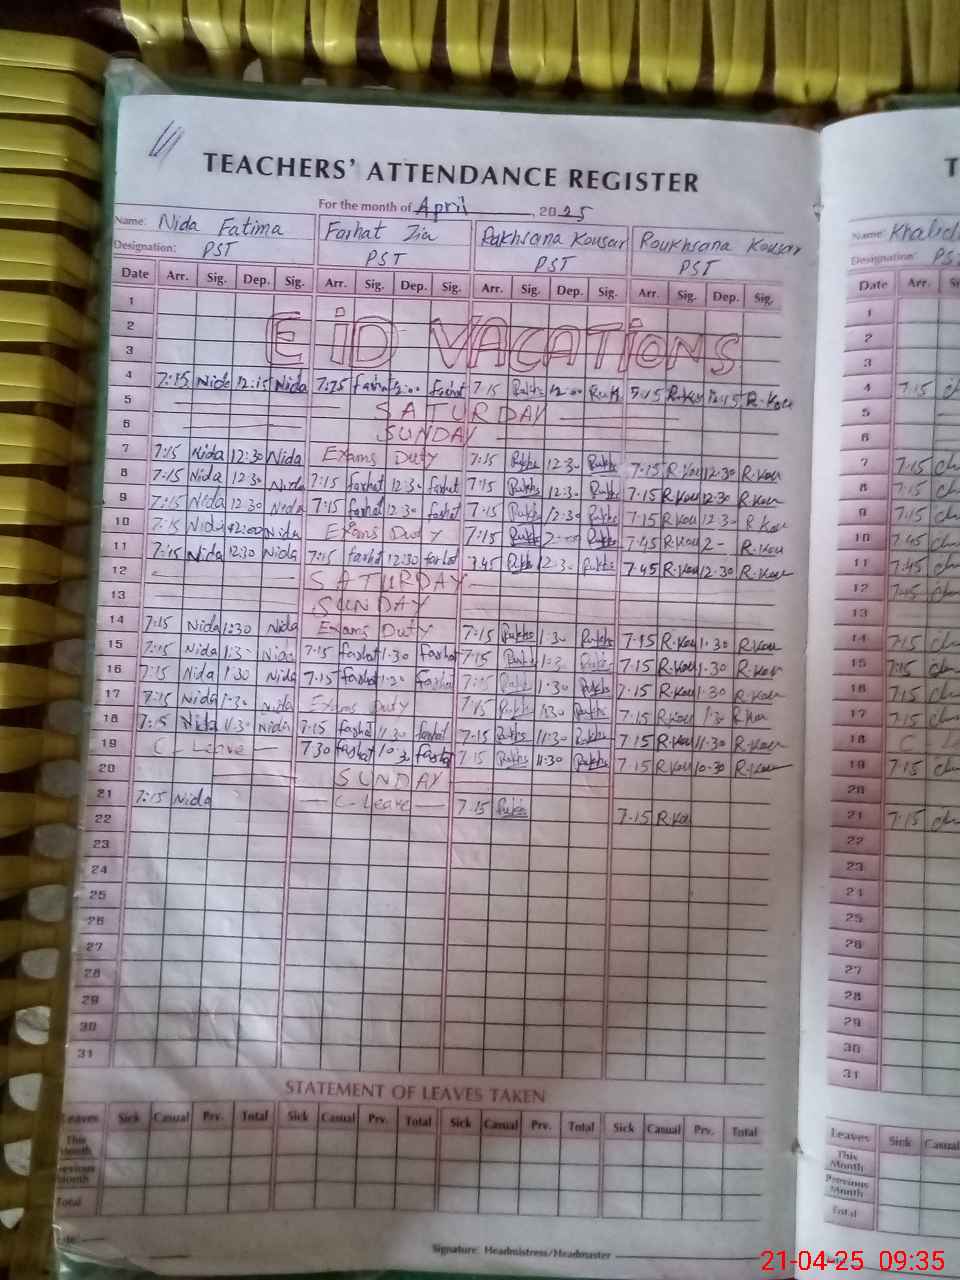 TEACHERS' ATTENDANCE REGISTER
For the month of April, 2025
Name: Nida Fatima Farhat Zia Rakhsana Kousar Roukhsana Kousar
Designation: PST PST PST PST
Date Arr. Sig. Dep. Sig. Arr. Sig. Dep. Sig. Arr. Sig. Dep. Sig. Arr. Sig. Dep. Sig.
1
2 EID VACATIONS
3
4 7:15 Nida 12:15 Nida farhat 12:00 farhat 7:15 12:00 R.Kou 12:15 R.Kou
5 SATURDAY
6 SUNDAY
7 7:15 Nida 12:30 Nida Exams Duty 7:15 Rukhs 12:30 Rukhs 7:15 R.Kou 12:30 R.Kou
8 7:15 Nida 12:30 Nida 7:15 farhat 12:30 farhat 7:15 Rukhs 12:30 Rukhs 7.15 R.Kou 12:30 R.Kou
9 7:15 Nida 12:30 Nida 7:15 farhat 12:30 farhat 7:15 Rukhs 12:30 Rukhs 7.15 R.Kou 12:3- R.Kou
10 7:15 Nida 12:00 Nida Exams Duty 7:15 Rukhs Rukhs 7.45 R.Kou R.Kou
11 7:15 Nida 12:30 Nida 7:15 farhat 12:30 farhat 7.45 Rukhs 12:3- Rukhs 7.45 R.Kou 12.30 R.Kou
12 SATURDAY
13 SUNDAY
14 7:15 Nida 1:30 Nida Exams Duty 7:15 Rukhs 1:30 Rukhs 7.15 R.Kou 1.30 R.Kou
15 7:15 Nida 1:3- Nida 7.15 farhat 1.30 farhat 7:15 Rukhs 1:3- Rukhs 7.15 R.Kou 1.30 R.Kou
16 7:15 Nida 1:30 Nida 7.15 farhat 1.30 farhat 7:15 Rukhs 1:30 Rukhs 7.15 R.Kou 1.30 R.Kou
17 7:15 Nida 1:30 Nida Exams Duty 7:15 Rukhs 1:30 Rukhs 7.15 R.Kou 1.30 R.Kou
18 7:15 Nida 11:30 Nida 7:15 farhat 11.30 farhat 7.15 Rukhs 11:30 Rukhs 7.15 R.Kou 11.30 R.Kou
19 C-Leave 7:30 farhat 10:30 farhat 7.15 Rukhs 11:30 Rukhs 7.15 R.Kou 10.30 R.Kou
20 SUNDAY
21 7:15 Nida C-Leave 7.15 Rukhs 7.15 R.Kou
22
23
24
25
26
27
28
29
30
31
STATEMENT OF LEAVES TAKEN
Leaves Sick Casual Prv. Total Sick Casual Prv. Total Sick Casual Prv. Total Sick Casual Prv. Total
This Month
Previous Month
Total
Signature: Headmistress/Headmaster
T
Name: Khalid
Designation: PS
Date Arr.
1
2
3
4 7.15
5
6
7 7.15
8 7.15
9 7.15
10 7.45
11 7.45
12
13
14 7.15
15 7:15
16 7.15
17 7.15
18 C-L
19 7.15
20
21 7.15
22
23
24
25
26
27
28
29
30
31
Leaves Sick Casual
This Month
Previous Month
Total
21-04-25 09:35